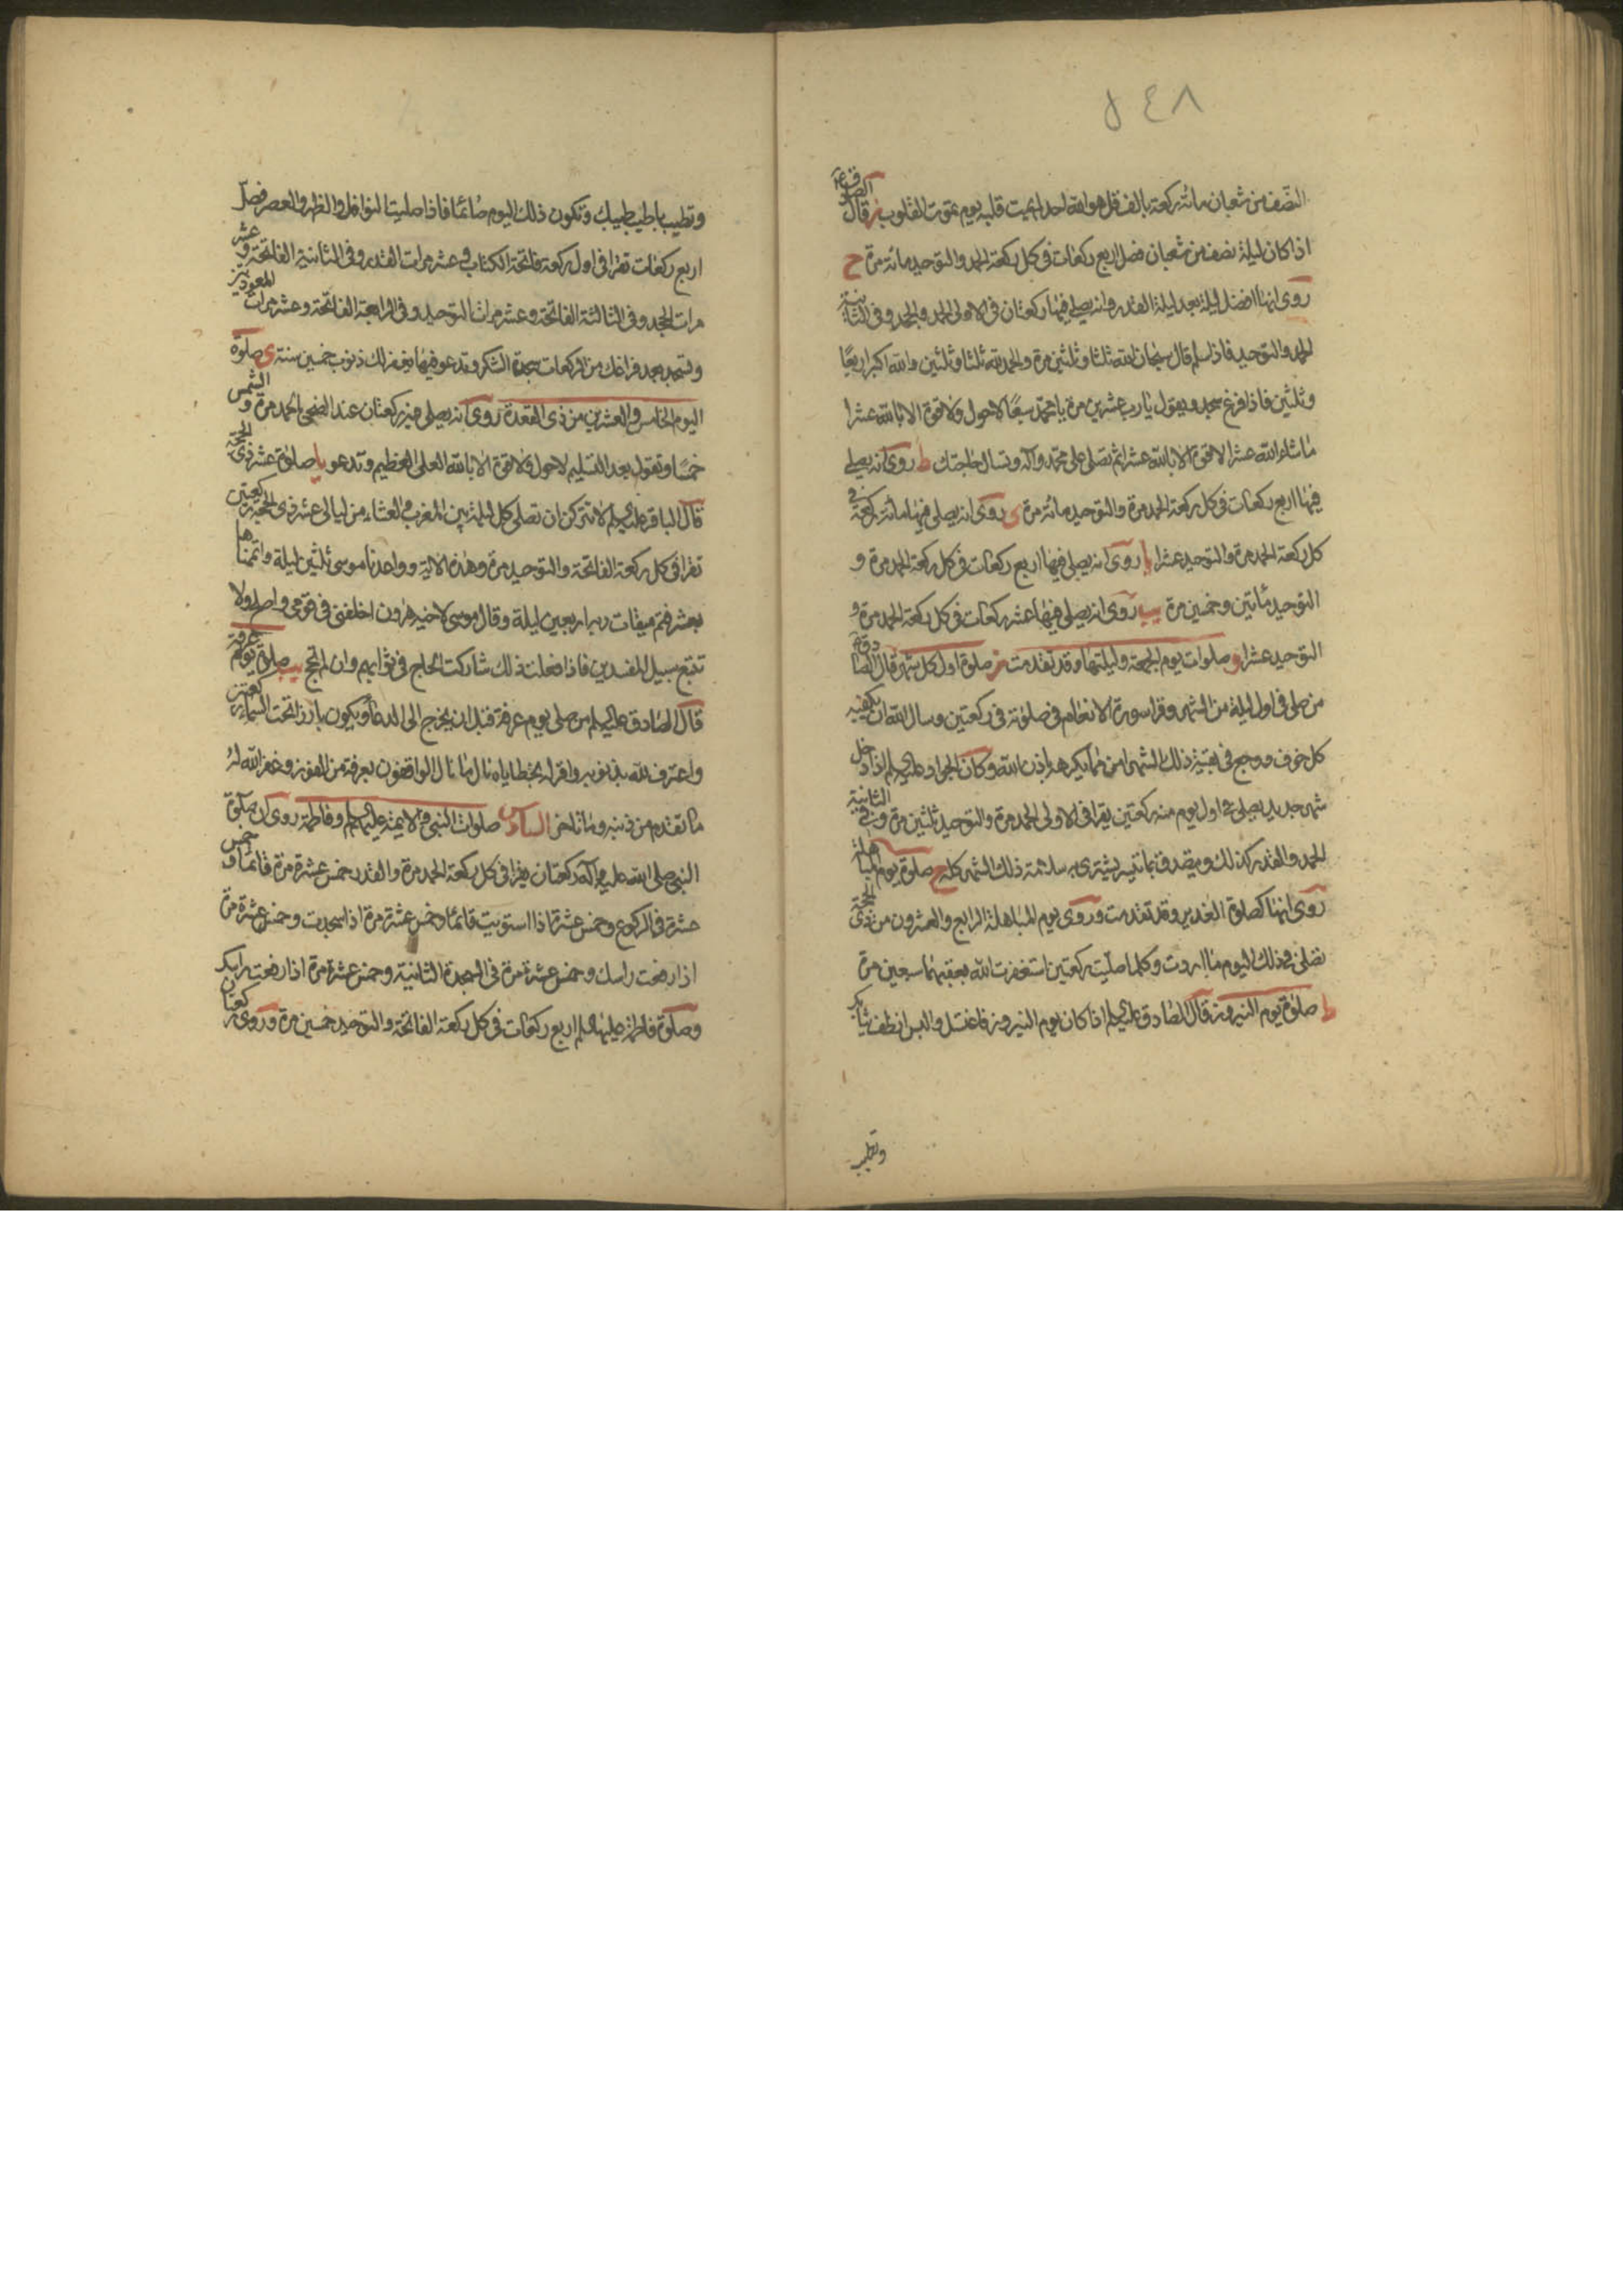 ٥٤٨
النصف من شعبان مائة ركعة بالف قل هو الله احد لم يمت قلبه يوم تموت القلوب ز قال الصادق ع
اذا كان ليلة نصف من شعبان فصل اربع ركعات فى كل ركعة الحمد والتوحيد مائة مرة ح
روى انها افضل ليلة بعد ليلة القدر وانه يصلى فيها ركعتان فى الاولى الحمد والجحد وفى الثانية
الحمد والتوحيد فاذا سلم قال سبحان الله ثلثا وثلثين مرة والحمد لله ثلثا وثلثين والله اكبر اربعا
وثلثين فاذا فرغ سجد ويقول يا رب عشرين مرة يا محمد سبعا لا حول ولا قوة الا بالله عشرا
ما شاء الله عشرا لا قوة الا بالله عشرا ثم تصلى على محمد وآله وتسال حاجتك ط روى انه يصلى
فيها اربع ركعات فى كل ركعة الحمد مرة والتوحيد مائة مرة ى روى انه يصلى فيها مائة ركعة فى
كل ركعة الحمد مرة والتوحيد عشرا يا روى انه يصلى فيها اربع ركعات فى كل ركعة الحمد مرة و
التوحيد مأتين وخمسين مرة يب روى انه يصلى فيها عشر ركعات فى كل ركعة الحمد مرة و
التوحيد عشرا و صلوات يوم الجمعة وليلتها وقد تقدمت ز صلوة اول كل شهر قال الصادق ع
من صلى فى اول ليلة من الشهر وقرا سورة الانعام فى صلوته فى ركعتين وسال الله ان يكفيه
كل خوف ووجع فى بقية ذلك الشهر امن مما يكرهه باذن الله وكان الجواد عليه السلم اذا دخل
شهر جديد يصلى فى اول يوم منه ركعتين يقرا فى الاولى الحمد مرة والتوحيد ثلثين مرة وفى الثانية
الحمد والقدر كذلك ويتصدق بما تيسر يشترى به سلامة ذلك الشهر كله ح صلوة يوم المباهلة
روى انها كصلوة الغدير وقد تقدمت وروى يوم المباهلة الرابع والعشرون من ذى الحجة
تصلى فى ذلك اليوم ما اردت وكلما صليت ركعتين استغفرت الله بعقبهما سبعين مرة
ط صلوة يوم النيروز قال الصادق عليه السلم اذا كان يوم النيروز فاغتسل والبس انظف ثيابك
وتطيب
وتطيب باطيب طيبك وتكون ذلك اليوم صائما فاذا صليت النوافل والظهر والعصر فصل
اربع ركعات تقرا فى اول ركعة فاتحة الكتاب وعشر مرات القدر وفى الثانية الفاتحة وعشر
مرات الجحد وفى الثالثة الفاتحة وعشر مرات التوحيد وفى الرابعة الفاتحة وعشر مرات المعوذتين
وتسجد بعد فراغك من الركعات سجدة الشكر وتدعو فيها يغفر لك ذنوب خمسين سنة ى صلوة
اليوم الخامس والعشرين من ذى القعدة روى انه يصلى فيه ركعتان عند الضحى الحمد مرة والشمس
خمسا وتقول بعد التسليم لا حول ولا قوة الا بالله العلى العظيم وتدعو يا صلوة عشر ذى الحجة
قال الباقر عليه السلم لا تتركن ان تصلى كل ليلة بين المغرب والعشاء من ليالى عشر ذى الحجة ركعتين
تقرا فى كل ركعة الفاتحة والتوحيد مرة وهذه الآية وواعدنا موسى ثلثين ليلة واتممناها
بعشر فتم ميقات ربه اربعين ليلة وقال موسى لاخيه هرون اخلفنى فى قومى واصلح ولا
تتبع سبيل المفسدين فاذا فعلت ذلك شاركت الحاج فى ثوابهم وان لم تحج يب صلوة يوم عرفة
قال الصادق عليه السلم من صلى يوم عرفة قبل ان يخرج الى الدعاء ويكون بارزا تحت السماء ركعتين
واعترف لله بذنوبه واقر له بخطاياه نال ما نال الواقفون بعرفة من الفوز وغفر الله له
ما تقدم من ذنبه وما تاخر السادس صلوات النبى والائمة عليهم السلم وفاطمة روى ان صلوة
النبى صلى الله عليه وآله ركعتان يقرا فى كل ركعة الحمد مرة والقدر خمس عشرة مرة قائما وخمس
عشرة فى الركوع وخمس عشرة اذا استويت قائما وخمس عشرة مرة اذا سجدت وخمس عشرة مرة
اذا رفعت راسك وخمس عشرة مرة فى السجدة الثانية وخمس عشرة مرة اذا رفعت راسك
وصلوة فاطمة عليها السلم اربع ركعات فى كل ركعة الفاتحة والتوحيد خمسين مرة وروى ركعتان